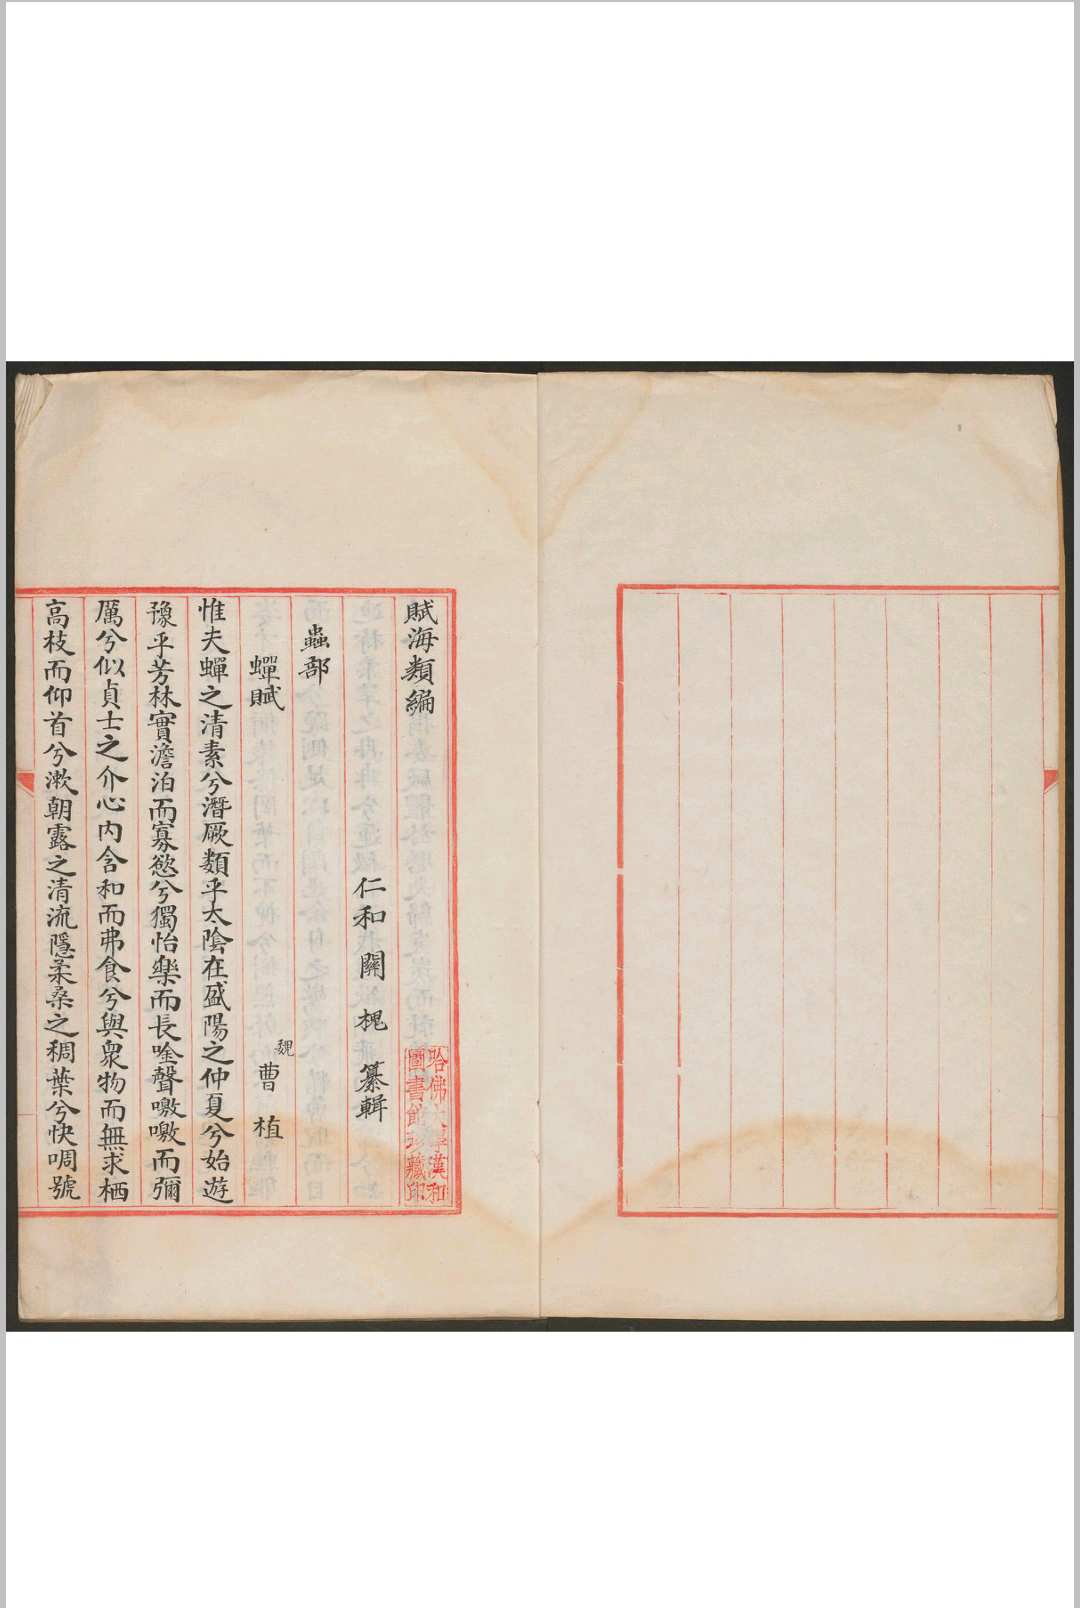 賦海類編
仁和關槐纂輯
蟲部
蟬賦 魏 曹植
惟夫蟬之清素兮潛厥類乎太陰在盛陽之仲夏兮始遊
豫乎芳林實澹泊而寡慾兮獨怡樂而長唫聲噭噭而彌
厲兮似貞士之介心內含和而弗食兮與衆物而無求栖
高枝而仰首兮漱朝露之清流隱柔桑之稠葉兮快啁號
哈佛大學漢和
圖書館珍藏印